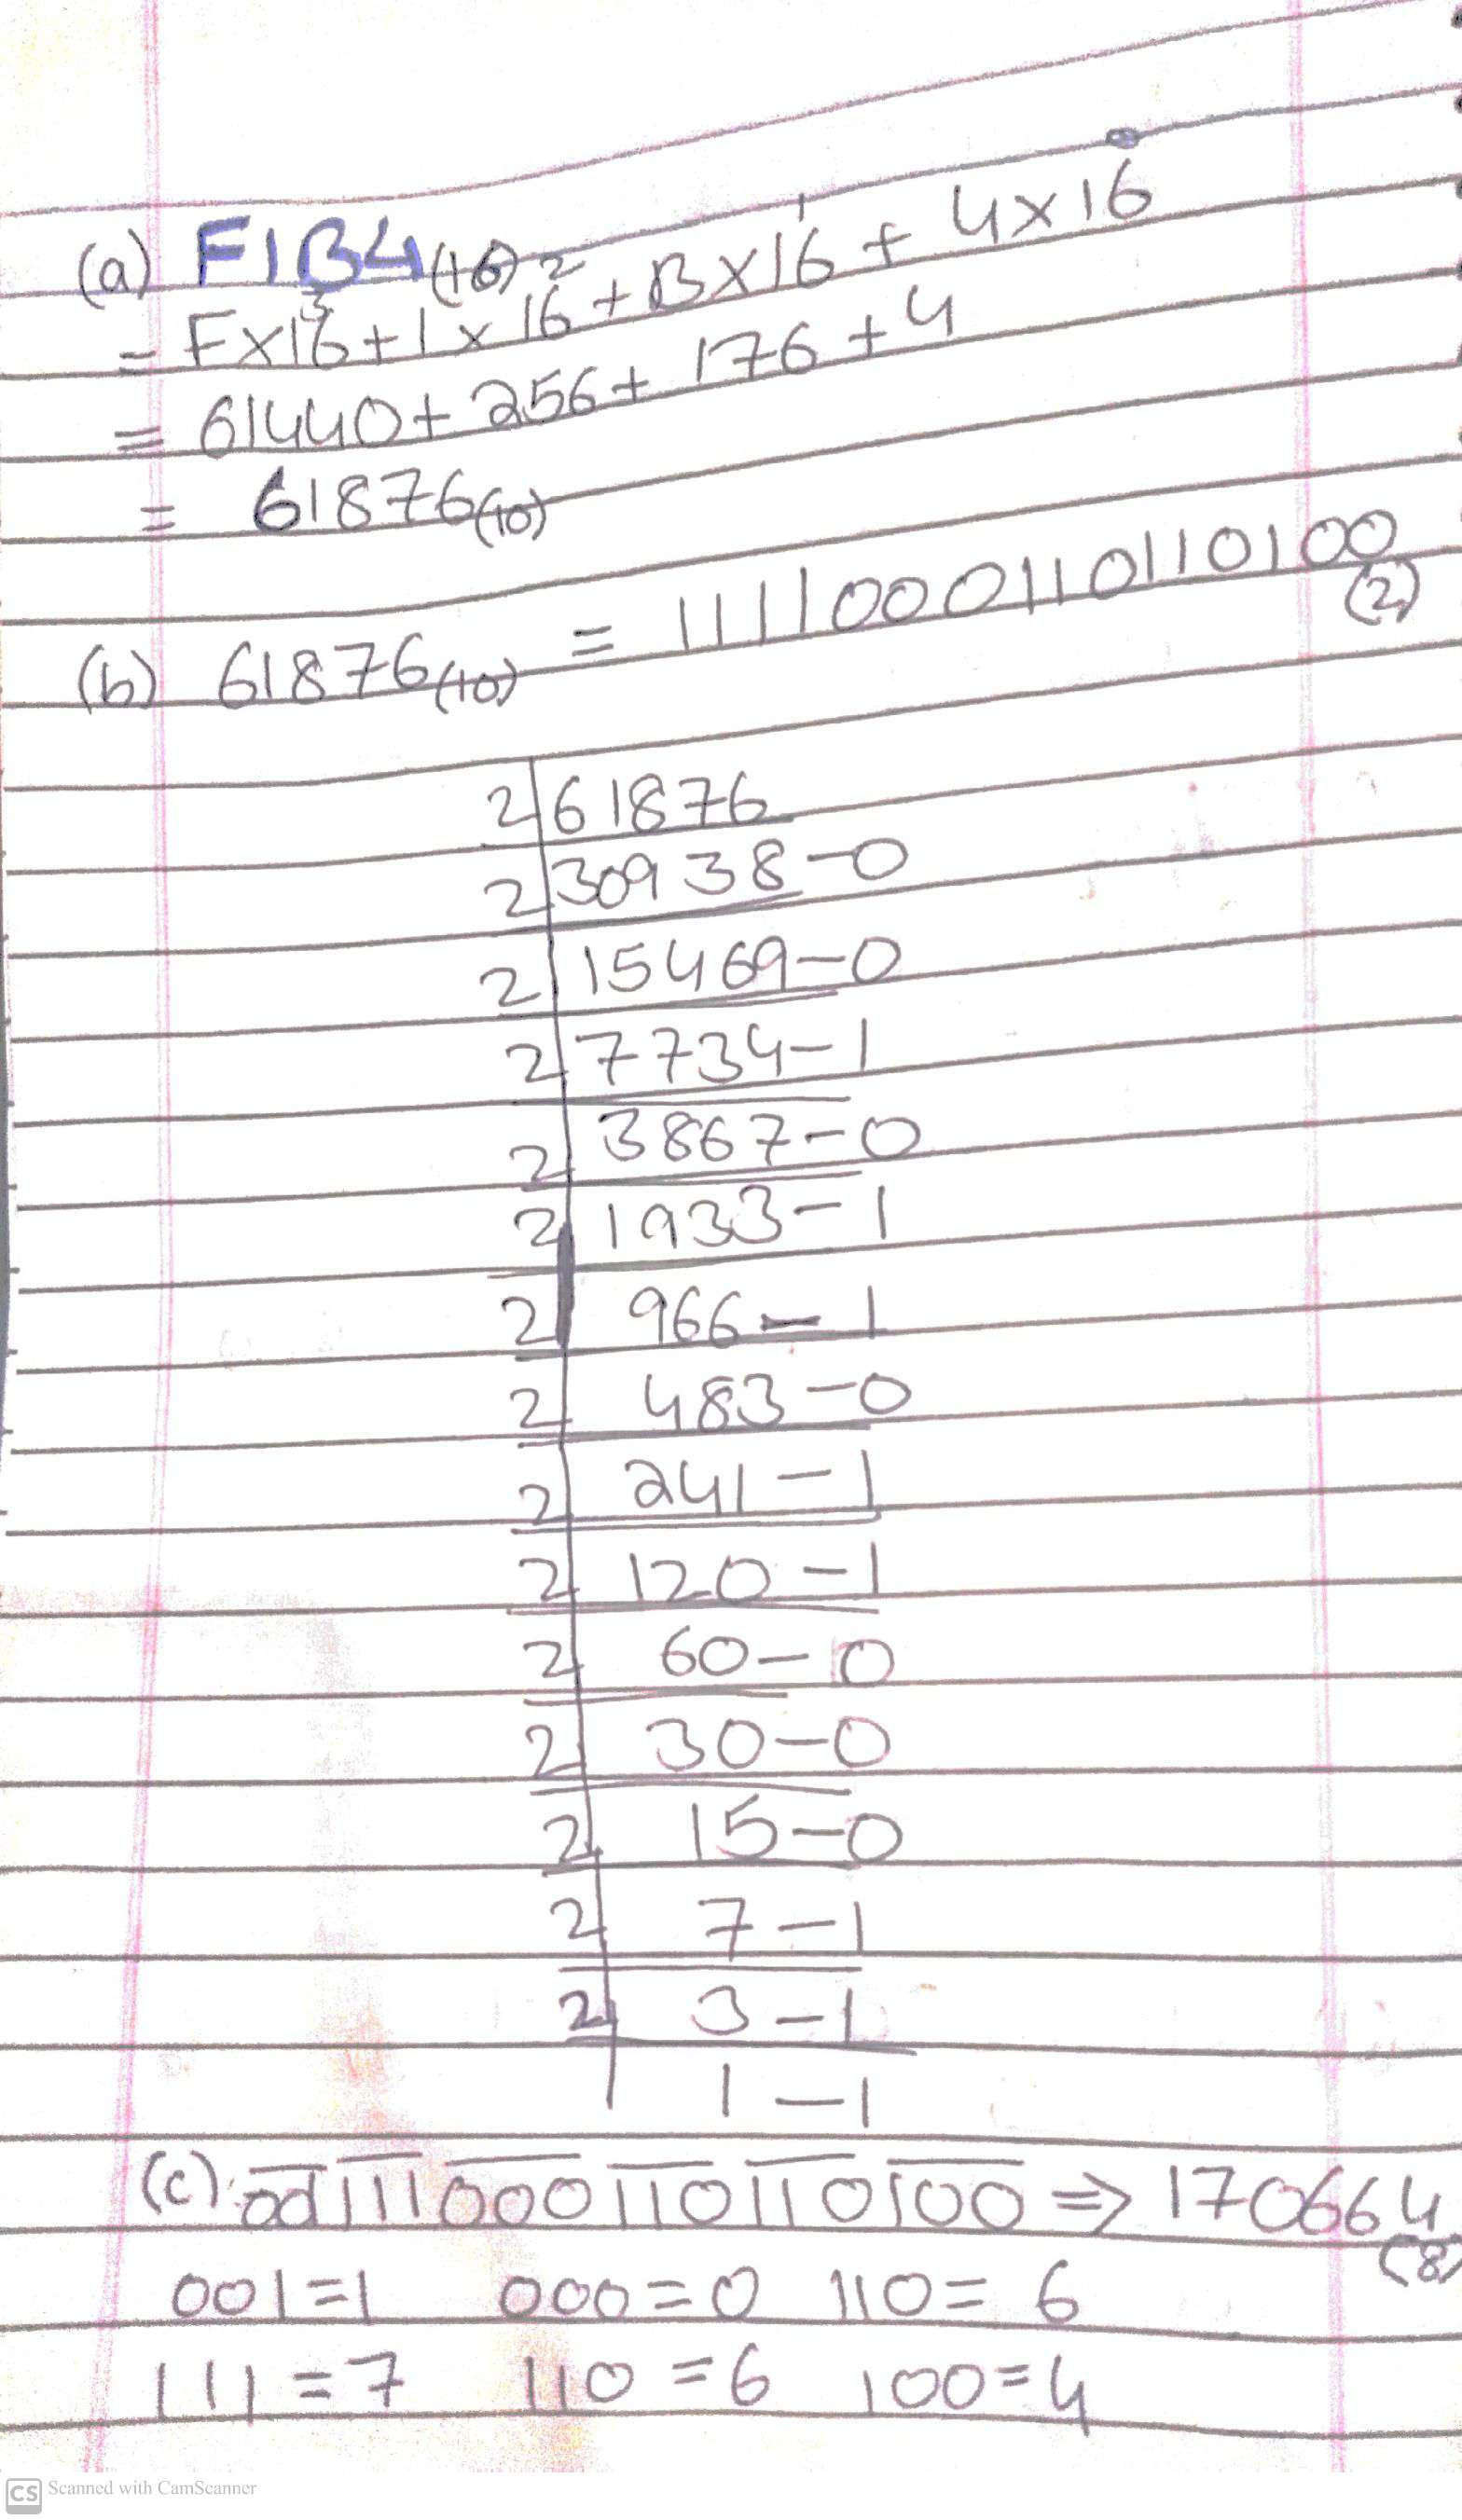 (a) F1B4(16)
= F×16³+1×16²+B×16¹+4×16⁰
= 61440+256+176+4
= 61876(10)
(b) 61876(10) = 1111000110110100(2)
2|61876
2|30938-0
2|15469-0
2|7734-1
2|3867-0
2|1933-1
2|966-1
2|483-0
2|241-1
2|120-1
2|60-0
2|30-0
2|15-0
2|7-1
2|3-1
1-1
(c) 001111000110110100 ⇒ 170664(8)
001=1 000=0 110=6
111=7 110=6 100=4
CS Scanned with CamScanner